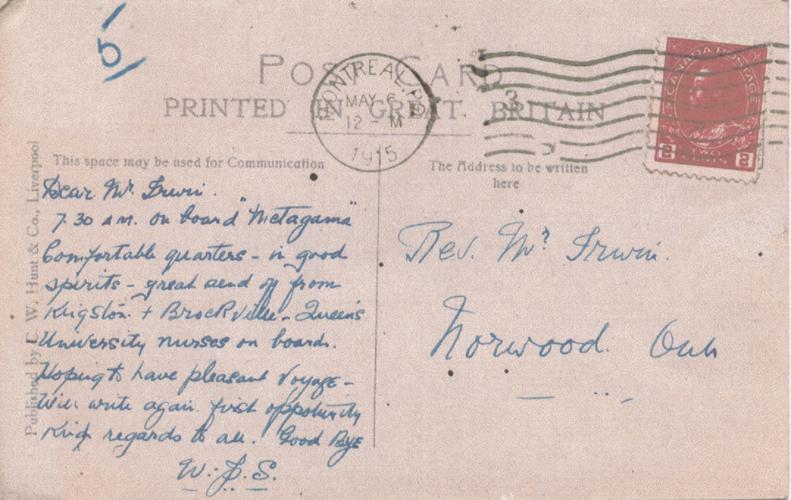 5
POST CARD
MONTREAL, P.Q.
MAY 6
12 - M
1915
3
PRINTED IN GREAT BRITAIN
CANADA POSTAGE
2 TWO CENTS 2
This space may be used for Communication
The Address to be written
here
Published by C. W. Hunt & Co., Liverpool
Dear Mr Irwin.
7.30 A.M. on board "Metagama"
Comfortable quarters - in good
spirits - great send off from
Kingston + Brockville - Queen's
University nurses on board.
Hoping to have pleasant voyage -
Will write again first oppotunity
Kind regards to all. Good Bye
W. J. S.
Rev. Mr Irwin.
Norwood. Ont